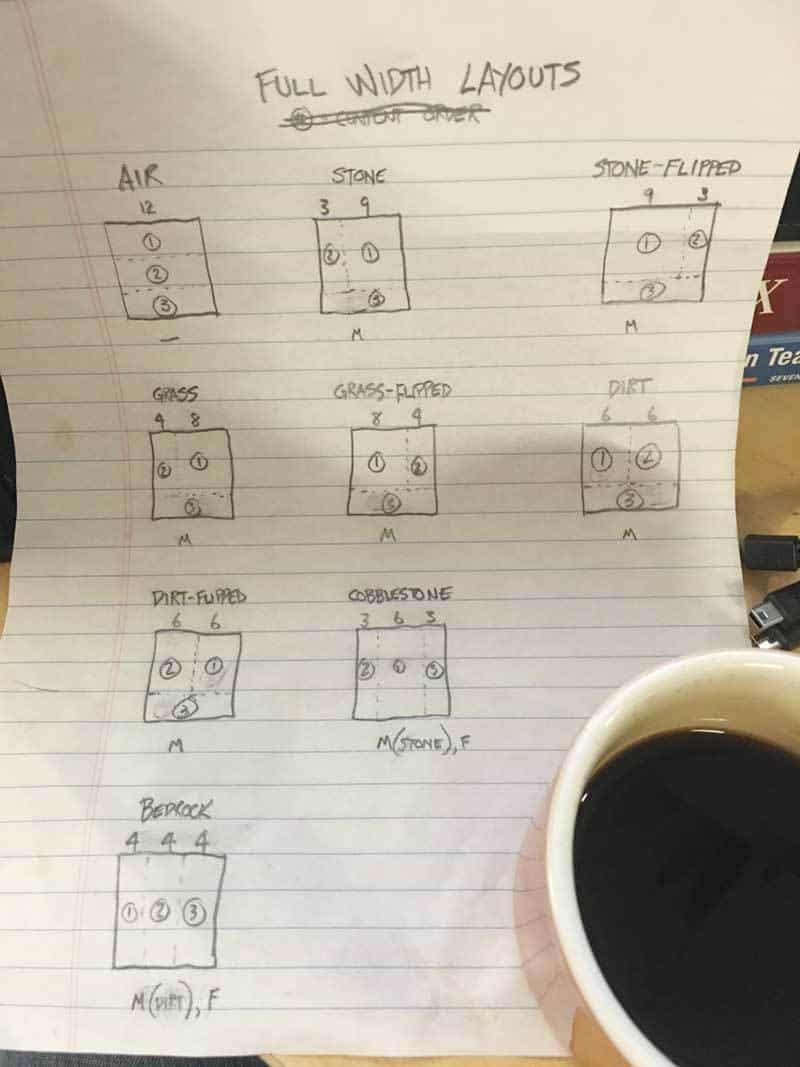 FULL WIDTH LAYOUTS
# = CONTENT ORDER
AIR
12
1
2
3
—
STONE
3 9
2 1
3
M
STONE-FLIPPED
9 3
1 2
3
M
GRASS
4 8
2 1
3
M
GRASS-FLIPPED
8 4
1 2
3
M
DIRT
6 6
1 2
3
M
DIRT-FLIPPED
6 6
2 1
3
M
COBBLESTONE
3 6 3
2 1 3
M(STONE), F
BEDROCK
4 4 4
1 2 3
M(DIRT), F
X
n Tea
SEVEN